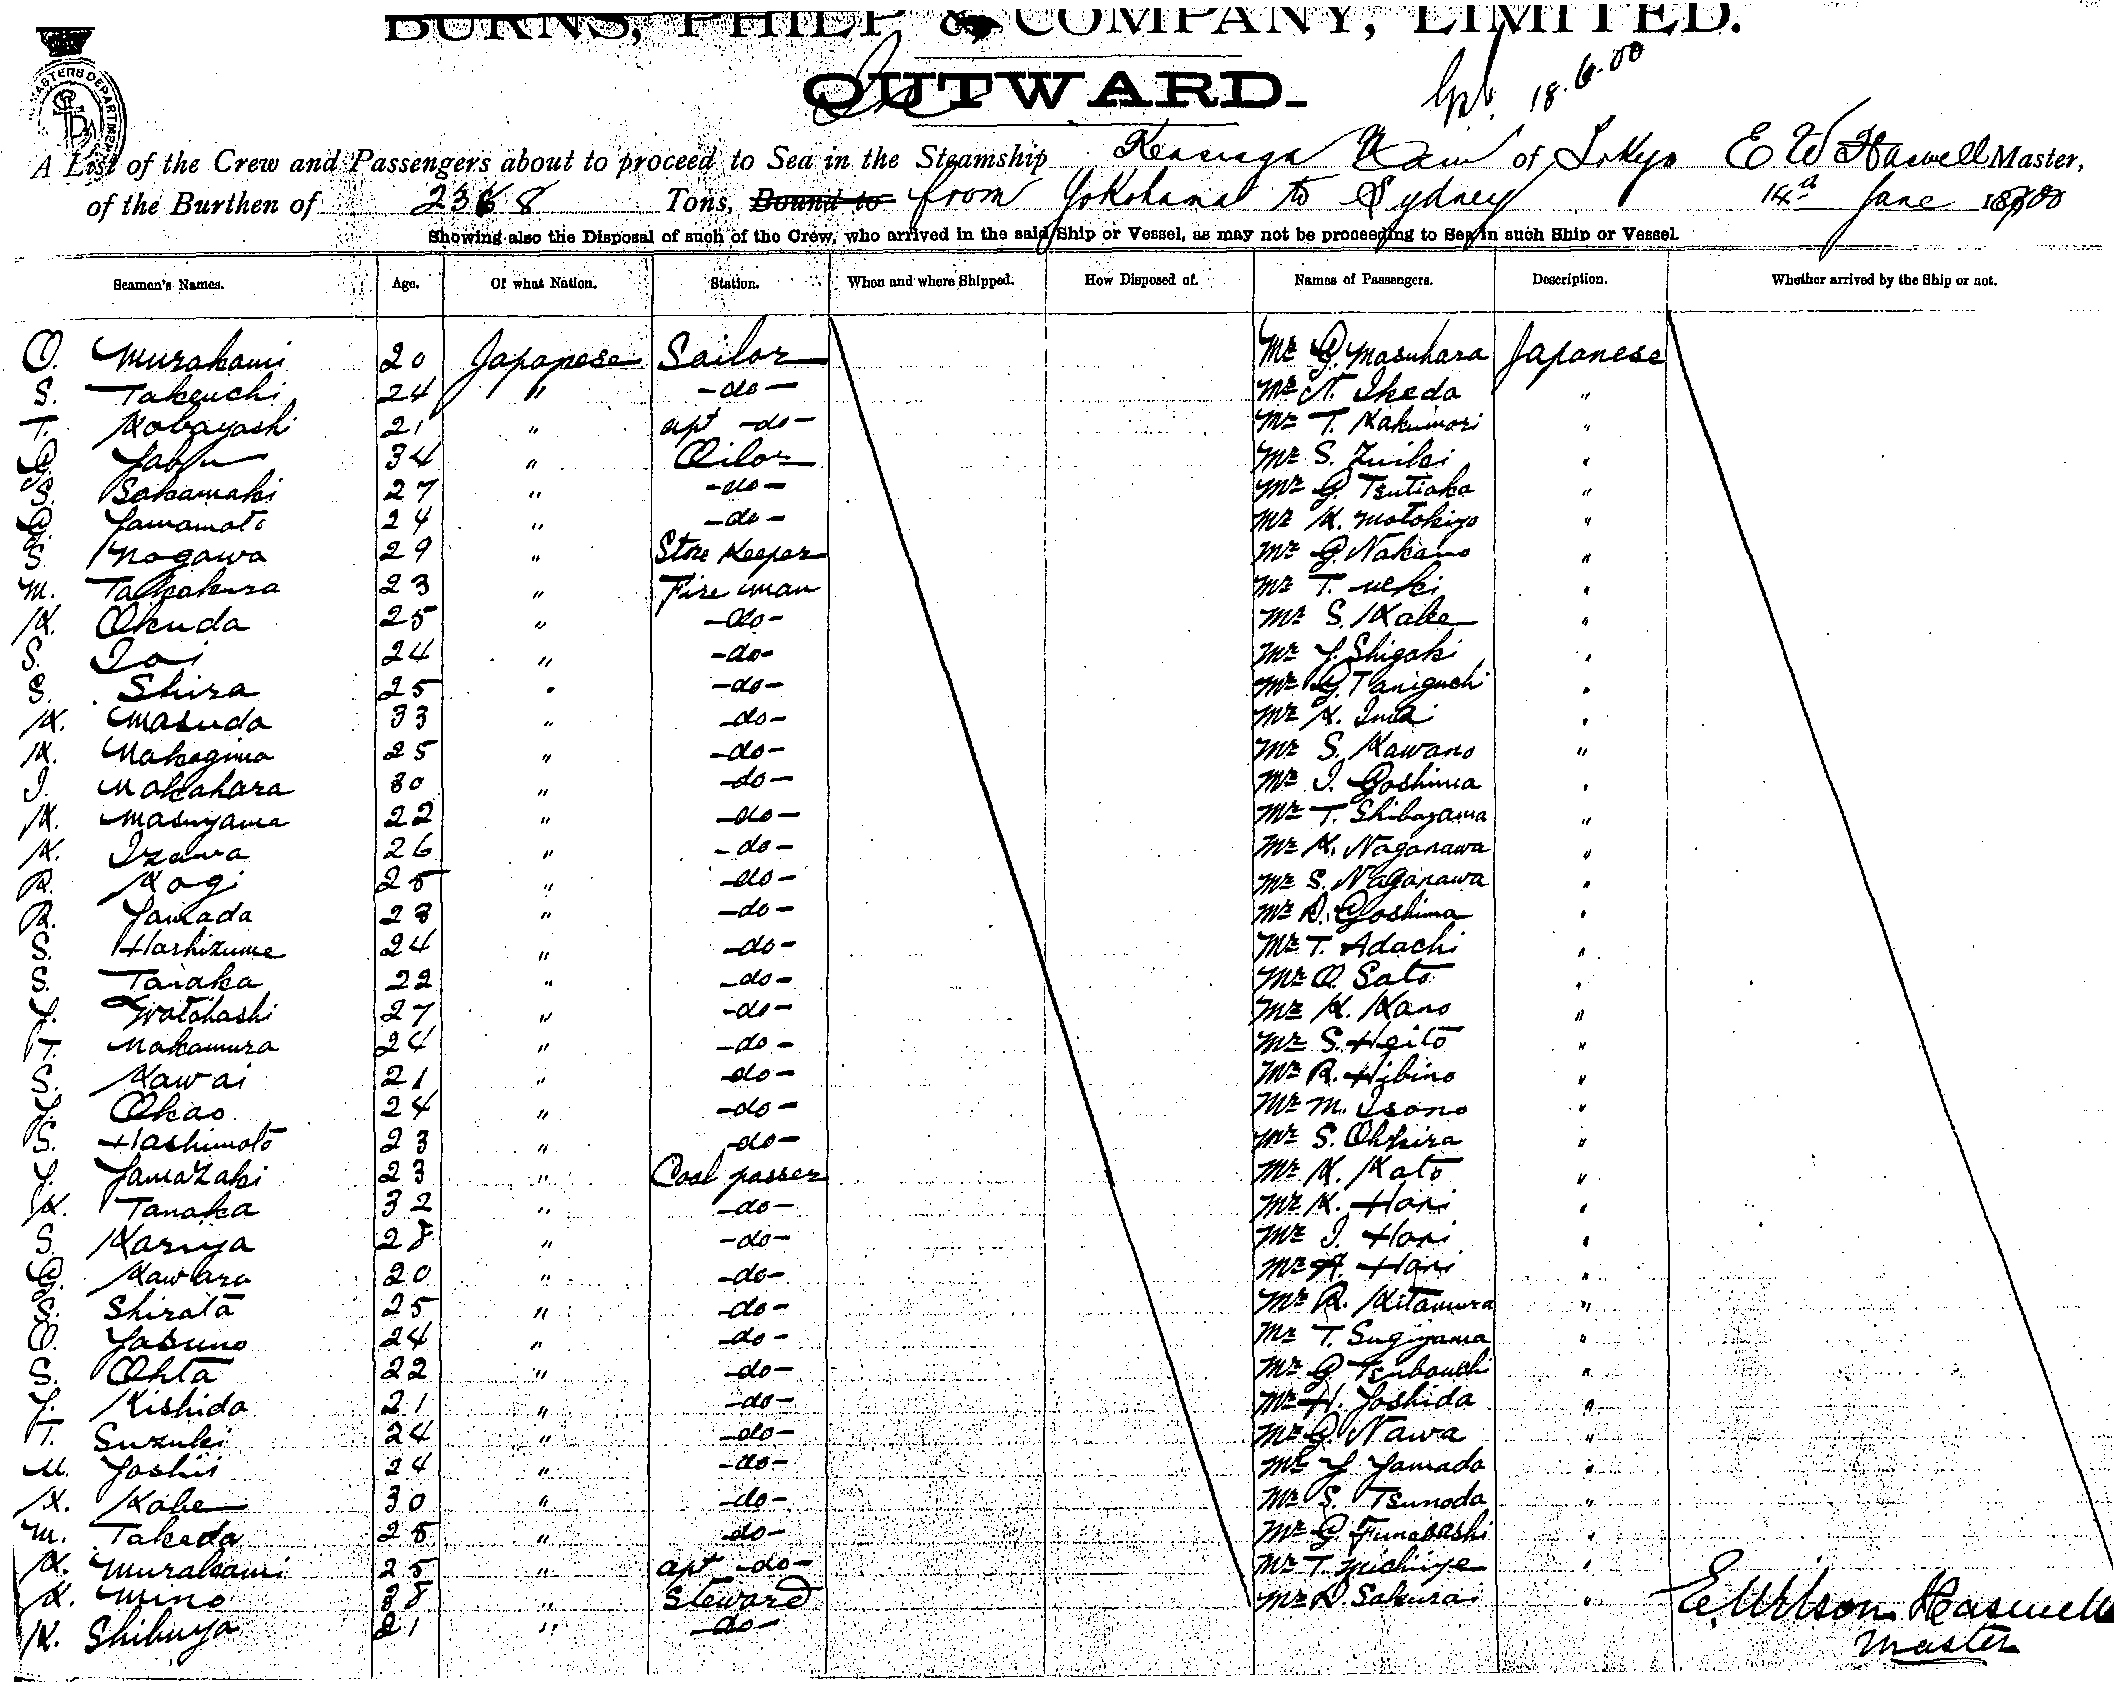 BURNS, PHILP & COMPANY, LIMITED.
OUTWARD.
18.6.00
A List of the Crew and Passengers about to proceed to Sea in the Steamship Kasuga Maru of Tokyo E W Haswell Master,
of the Burthen of 2368 Tons, Bound to from Yokohama to Sydney 18th June 1900
Showing also the Disposal of such of the Crew, who arrived in the said Ship or Vessel, as may not be proceeding to Sea in such Ship or Vessel.
Seamen's Names. Age. Of what Nation. Station. When and where Shipped. How Disposed of. Names of Passengers. Description. Whether arrived by the Ship or not.
O. Murakami 20 Japanese Sailor Mr G. Masuhara Japanese
S. Takeuchi 24 " -do- Mr N. Ikeda "
T. Kobayashi 21 " apt -do- Mr T. Kakumori "
G. Yabu 34 " Oiler Mr S. Zuiki "
S. Sakamaki 27 " -do- Mr G. Tsutioka "
G. Yamamoto 24 " -do- Mr K. Motokiyo "
S. Nogawa 29 " Store Keeper Mr G. Nakano "
M. Takakura 23 " Fireman Mr T. Ueki "
K. Okuda 25 " -do- Mr S. Kake "
S. Doi 24 " -do- Mr Y. Shigaki "
S. Shira 25 " -do- Mr G. Taniguchi "
K. Masuda 33 " -do- Mr K. Imai "
K. Nakagima 25 " -do- Mr S. Kawano "
I. Nakahara 30 " -do- Mr I. Goshima "
K. Masuyama 22 " -do- Mr T. Shibayama "
K. Izawa 26 " -do- Mr K. Naganawa "
R. Kogi 25 " -do- Mr S. Naganawa "
R. Yamada 23 " -do- Mr R. Goshima "
S. Hashizume 24 " -do- Mr T. Adachi "
S. Tanaka 22 " -do- Mr O. Sato "
Y. Watahashi 27 " -do- Mr K. Kano "
T. Nakamura 24 " -do- Mr S. Heito "
S. Kawai 21 " -do- Mr R. Hibino "
Y. Okao 24 " -do- Mr M. Isono "
S. Hashimoto 23 " -do- Mr S. Ohhira "
Y. Yamazaki 23 " Coal passer Mr K. Kato "
K. Tanaka 32 " -do- Mr K. Hori "
S. Kariya 28 " -do- Mr I. Hori "
G. Kawara 20 " -do- Mr A. Hori "
S. Shirata 25 " -do- Mr R. Kitamura "
O. Yasuno 24 " -do- Mr T. Sugiyama "
S. Ohta 22 " -do- Mr G Tsubouchi "
Y. Kishida 21 " -do- Mr H. Yoshida "
T. Suzuki 24 " -do- Mr G. Nawa "
U. Yoshii 24 " -do- Mr Y. Yamada "
K. Kobe 30 " -do- Mr S. Tsunoda "
M. Takeda 28 " -do- Mr G. Funabashi "
K. Murakami 25 " apt -do- Mr T. Michiiye "
K. Mino 28 " Steward Mr R. Sakurai "
K. Shibuya 21 " -do-
E. Wilson Haswell
Master